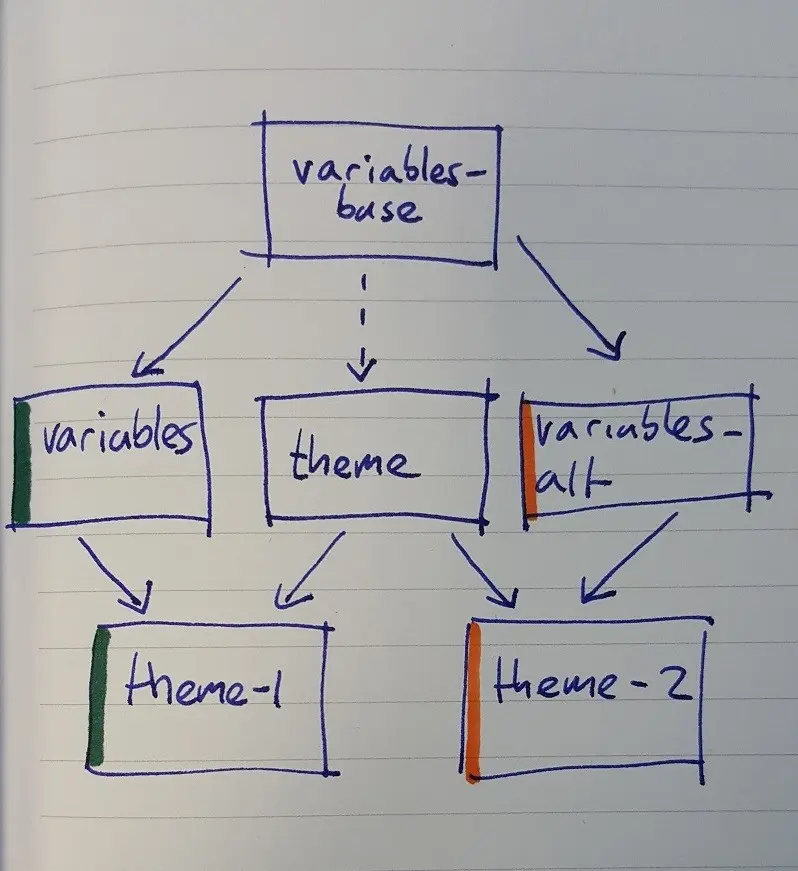 variables-
base
variables
theme
variables-
alt
theme-1
theme-2